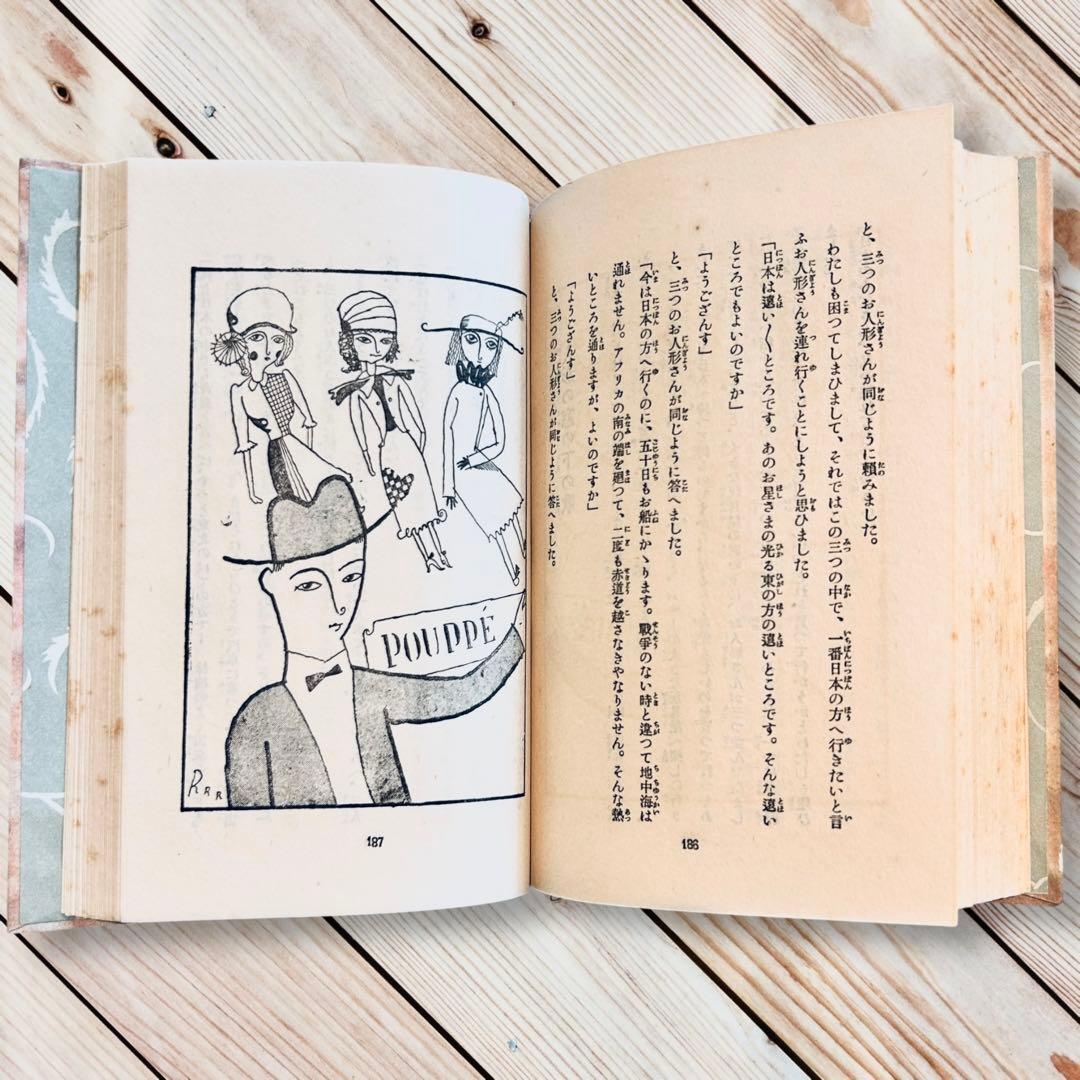 と、三つのお人形さんが同じように頼みました。
わたしも困つてしまひまして、それではこの三つの中で、一番日本の方へ行きたいと言
ふお人形さんを連れ行くことにしようと思ひました。
「日本は遠い〱ところです。あのお星さまの光る東の方の遠いところです。そんな遠い
ところでもよいのですか」
「ようござんす」
と、三つのお人形さんが同じように答へました。
「今は日本の方へ行くのに、五十日もお船にかゝります。戰爭のない時と違つて地中海は
通れません。アフリカの南の端を廻つて、二度も赤道を越さなきやなりません。そんな熱
いところを通りますが、よいのですか」
「ようござんす」
と、三つのお人形さんが同じように答へました。
186
POUPPÉ
RRR
187